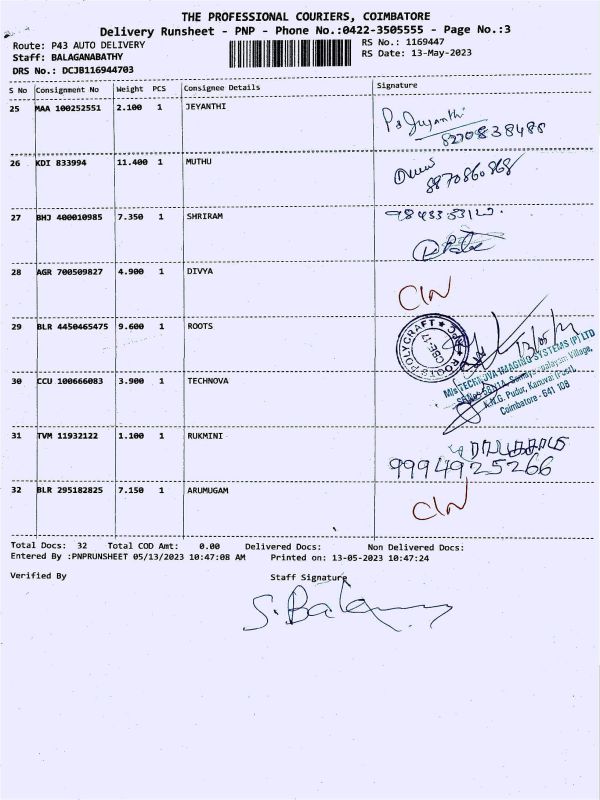 THE PROFESSIONAL COURIERS, COIMBATORE
Delivery Runsheet - PNP - Phone No.:0422-3505555 - Page No.:3
Route: P43 AUTO DELIVERY
RS No.: 1169447
Staff: BALAGANABATHY
RS Date: 13-May-2023
DRS No.: DCJB116944703
S No Consignment No Weight PCS Consignee Details Signature
25 MAA 100252551 2.100 1 JEYANTHI
P. Jeyanthi
8270838488
26 KDI 833994 11.400 1 MUTHU
8870860868
27 BHJ 400010985 7.350 1 SHRIRAM
28 AGR 700509827 4.900 1 DIVYA
CIN
29 BLR 4450465475 9.600 1 ROOTS
ROOTS POLYCRAFT
CBE-17
30 CCU 100666083 3.900 1 TECHNOVA
M/s TECHNOVA IMAGING SYSTEMS (P) LTD
A.N.G. Pudur, Kanuvai (Post),
Coimbatore - 641 108
31 TVM 11932122 1.100 1 RUKMINI
9994925266
32 BLR 295182825 7.150 1 ARUMUGAM
CIN
Total Docs: 32 Total COD Amt: 0.00 Delivered Docs: Non Delivered Docs:
Entered By :PNPRUNSHEET 05/13/2023 10:47:08 AM Printed on: 13-05-2023 10:47:24
Verified By Staff Signature
S. Bala